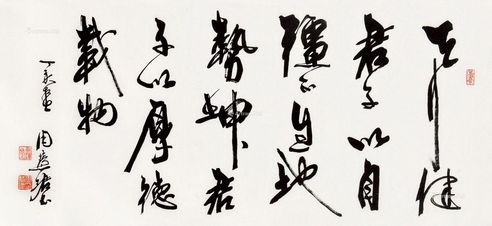 天行健
君子以自
彊不息地
勢坤君
子以厚德
載物
丁亥
周慧珺